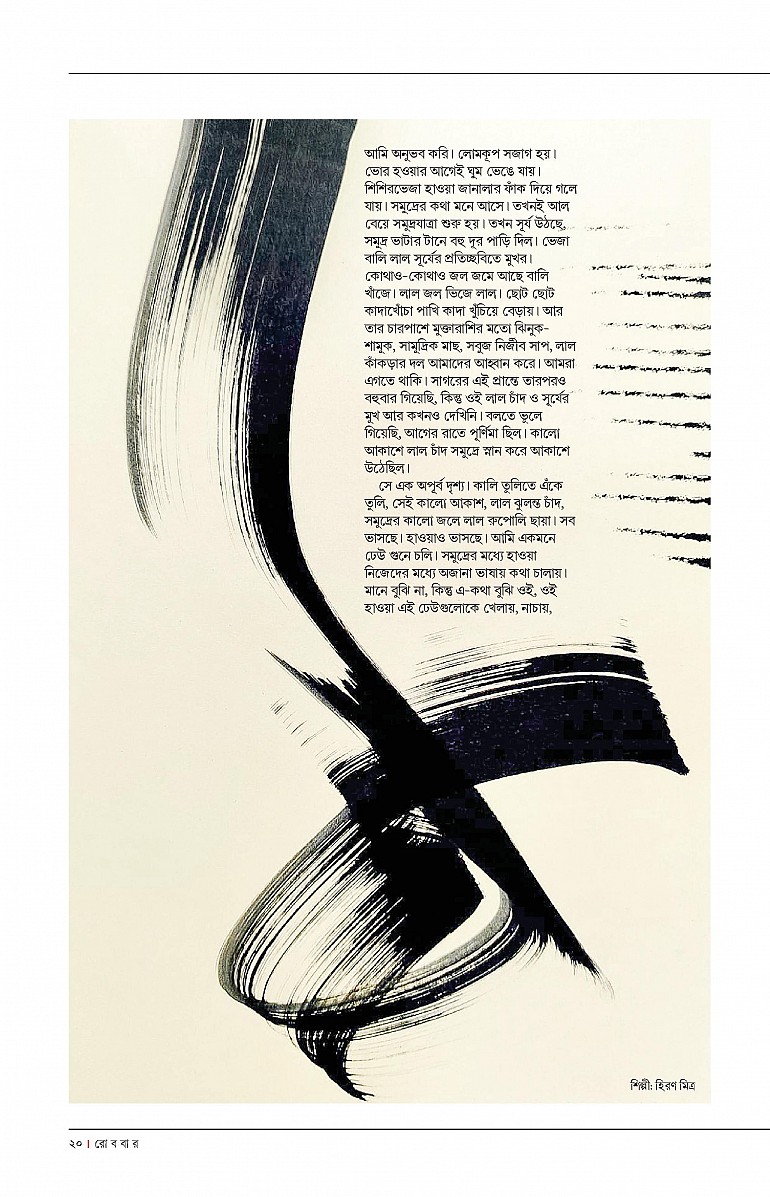 আমি অনুভব করি। লোমকূপ সজাগ হয়।
ভোর হওয়ার আগেই ঘুম ভেঙে যায়।
শিশিরভেজা হাওয়া জানালার ফাঁক দিয়ে গলে
যায়। সমুদ্রের কথা মনে আসে। তখনই আল
বেয়ে সমুদ্রযাত্রা শুরু হয়। তখন সূর্য উঠছে,
সমুদ্র ভাটার টানে বহু দূর পাড়ি দিল। ভেজা
বালি লাল সূর্যের প্রতিচ্ছবিতে মুখর।
কোথাও-কোথাও জল জমে আছে বালি
খাঁজে। লাল জল ভিজে লাল। ছোট ছোট
কাদাখোঁচা পাখি কাদা খুঁচিয়ে বেড়ায়। আর
তার চারপাশে মুক্তারাশির মতো ঝিনুক-
শামুক, সামুদ্রিক মাছ, সবুজ নির্জীব সাপ, লাল
কাঁকড়ার দল আমাদের আহ্বান করে। আমরা
এগতে থাকি। সাগরের এই প্রান্তে তারপরও
বহুবার গিয়েছি, কিন্তু ওই লাল চাঁদ ও সূর্যের
মুখ আর কখনও দেখিনি। বলতে ভুলে
গিয়েছি, আগের রাতে পূর্ণিমা ছিল। কালো
আকাশে লাল চাঁদ সমুদ্রে স্নান করে আকাশে
উঠেছিল।
সে এক অপূর্ব দৃশ্য। কালি তুলিতে এঁকে
তুলি, সেই কালো আকাশ, লাল ঝুলন্ত চাঁদ,
সমুদ্রের কালো জলে লাল রুপোলি ছায়া। সব
ভাসছে। হাওয়াও ভাসছে। আমি একমনে
ঢেউ গুনে চলি। সমুদ্রের মধ্যে হাওয়া
নিজেদের মধ্যে অজানা ভাষায় কথা চালায়।
মানে বুঝি না, কিন্তু এ-কথা বুঝি ওই, ওই
হাওয়া এই ঢেউগুলোকে খেলায়, নাচায়,
শিল্পী: হিরণ মিত্র
২০ । রো ব বা র